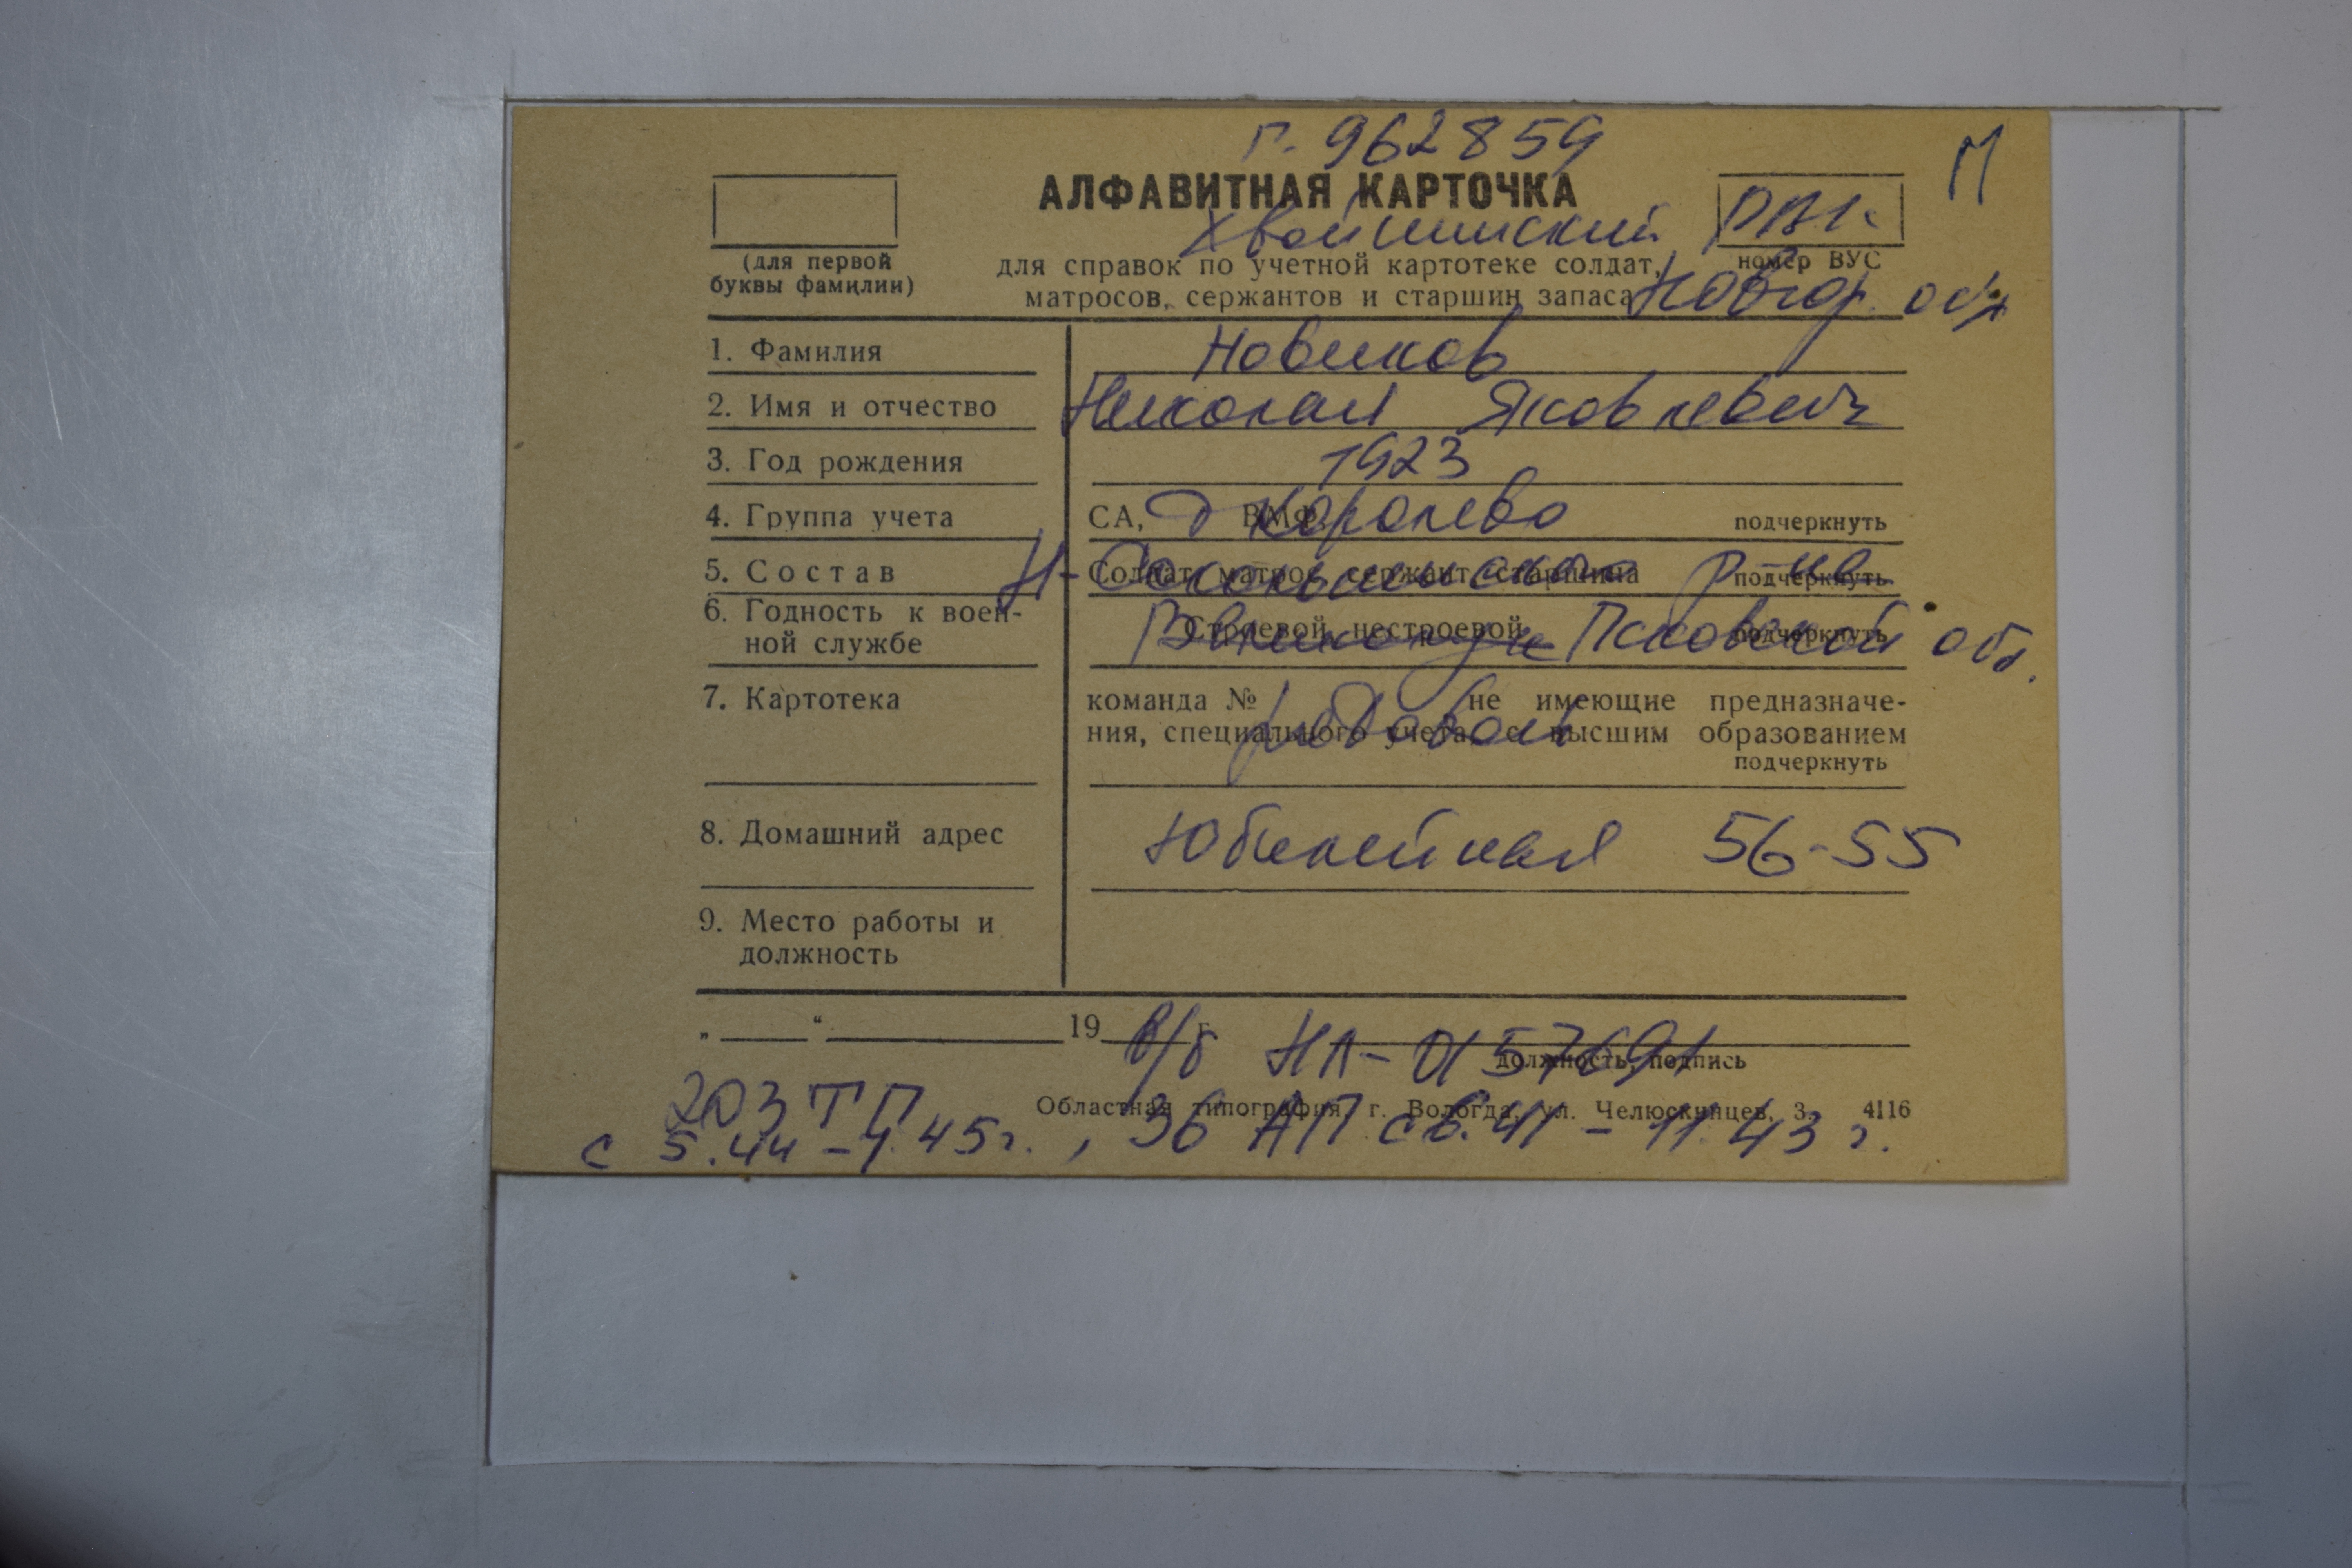 Г. 962859
П
АЛФАВИТНАЯ КАРТОЧКА
Хвойнинский РВК
(для первой буквы фамилии)
для справок по учетной картотеке солдат,
матросов, сержантов и старшин запаса
номер ВУС
Новгор. обл
1. Фамилия Новиков
2. Имя и отчество Николай Яковлевич
3. Год рождения 1923
4. Группа учета СА, ВМФ подчеркнуть
д Королево
5. Состав Солдат, матрос, сержант, старшина подчеркнуть
Н-Сокольнического р-на
6. Годность к воен-
ной службе Строевой, нестроевой подчеркнуть
Псковской обл.
7. Картотека команда № не имеющие предназначе-
ния, специального учета, с высшим образованием
подчеркнуть
рядовой
8. Домашний адрес Юбилейная 56-55
9. Место работы и
должность
„ “ 19 г.
в/б НЛ-0157691
должность, подпись
203 ТП
Областная типография, г. Вологда, ул. Челюскинцев, 3. 4116
с 5.44 - 1.45 г., 36 АП с 6.41 - 11.43 г.